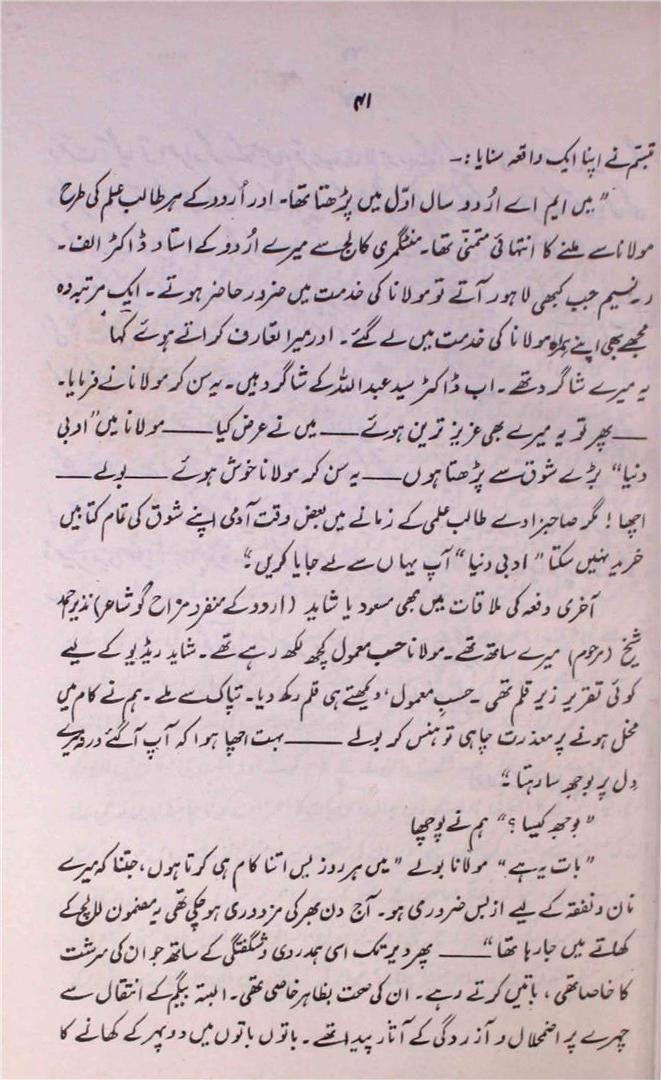 ۴۱
تبسّم نے اپنا ایک واقعہ سنایا :۔
"میں ایم اے اُردو سال اوّل میں پڑھتا تھا۔ اور اُردو کے ہر طالب علم کی طرح
مولانا سے ملنے کا انتہائی متمنّی تھا۔ منٹگمری کالج سے میرے اُردو کے استاد ڈاکٹر الف۔
د۔ نسیم جب کبھی لاہور آتے تو مولانا کی خدمت میں ضرور حاضر ہوتے۔ ایک مرتبہ وہ
مجھے بھی اپنے ہمراہ مولانا کی خدمت میں لے گئے۔ اور میرا تعارف کراتے ہوئے کہا
یہ میرے شاگرد تھے۔ اب ڈاکٹر سید عبداللہ کے شاگرد ہیں۔ یہ سن کر مولانا نے فرمایا۔
—— پھر تو یہ میرے بھی عزیز ترین ہوئے —— میں نے عرض کیا —— مولانا میں "ادبی
دنیا" بڑے شوق سے پڑھتا ہوں —— یہ سن کر مولانا خوش ہوئے —— بولے ——
اچھا! مگر صاحبزادے طالب علمی کے زمانے میں بعض وقت آدمی اپنے شوق کی تمام کتابیں
خرید نہیں سکتا "ادبی دنیا" آپ یہاں سے لے جایا کریں"۔
آخری دفعہ کی ملاقات میں محبی مسعود یا شاید (اردو کے منفرد مزاح گو شاعر) نذیر احمد
شیخ (مرحوم) میرے ساتھ تھے۔ مولانا حسب معمول کچھ لکھ رہے تھے۔ شاید ریڈیو کے لیے
کوئی تقریر زیر قلم تھی۔ حسبِ معمول، دیکھتے ہی قلم رکھ دیا۔ تپاک سے ملے۔ ہم نے کام میں
مخل ہونے پر معذرت چاہی تو ہنس کر بولے —— بہت اچھا ہوا کہ آپ آ گئے ورنہ میرے
دل پر بوجھ سا رہتا"۔
"بوجھ کیسا؟" ہم نے پوچھا
"بات یہ ہے" مولانا بولے "میں ہر روز بس اتنا کام ہی کرتا ہوں، جتنا کہ میرے
نان و نفقہ کے لیے ازبس ضروری ہو۔ آج دن بھر کی مزدوری ہو چکی تھی یہ مضمون لالچ کے
کھاتے میں جا رہا تھا" —— پھر دیر تک اسی ہمدردی و شگفتگی کے ساتھ جو ان کی سرشت
کا خاصا تھی، باتیں کرتے رہے۔ ان کی صحت بظاہر خاصی تھی۔ البتہ بیگم کے انتقال سے
چہرے پر اضمحلال و آزردگی کے آثار پیدا تھے۔ باتوں باتوں میں دوپہر کے کھانے کا